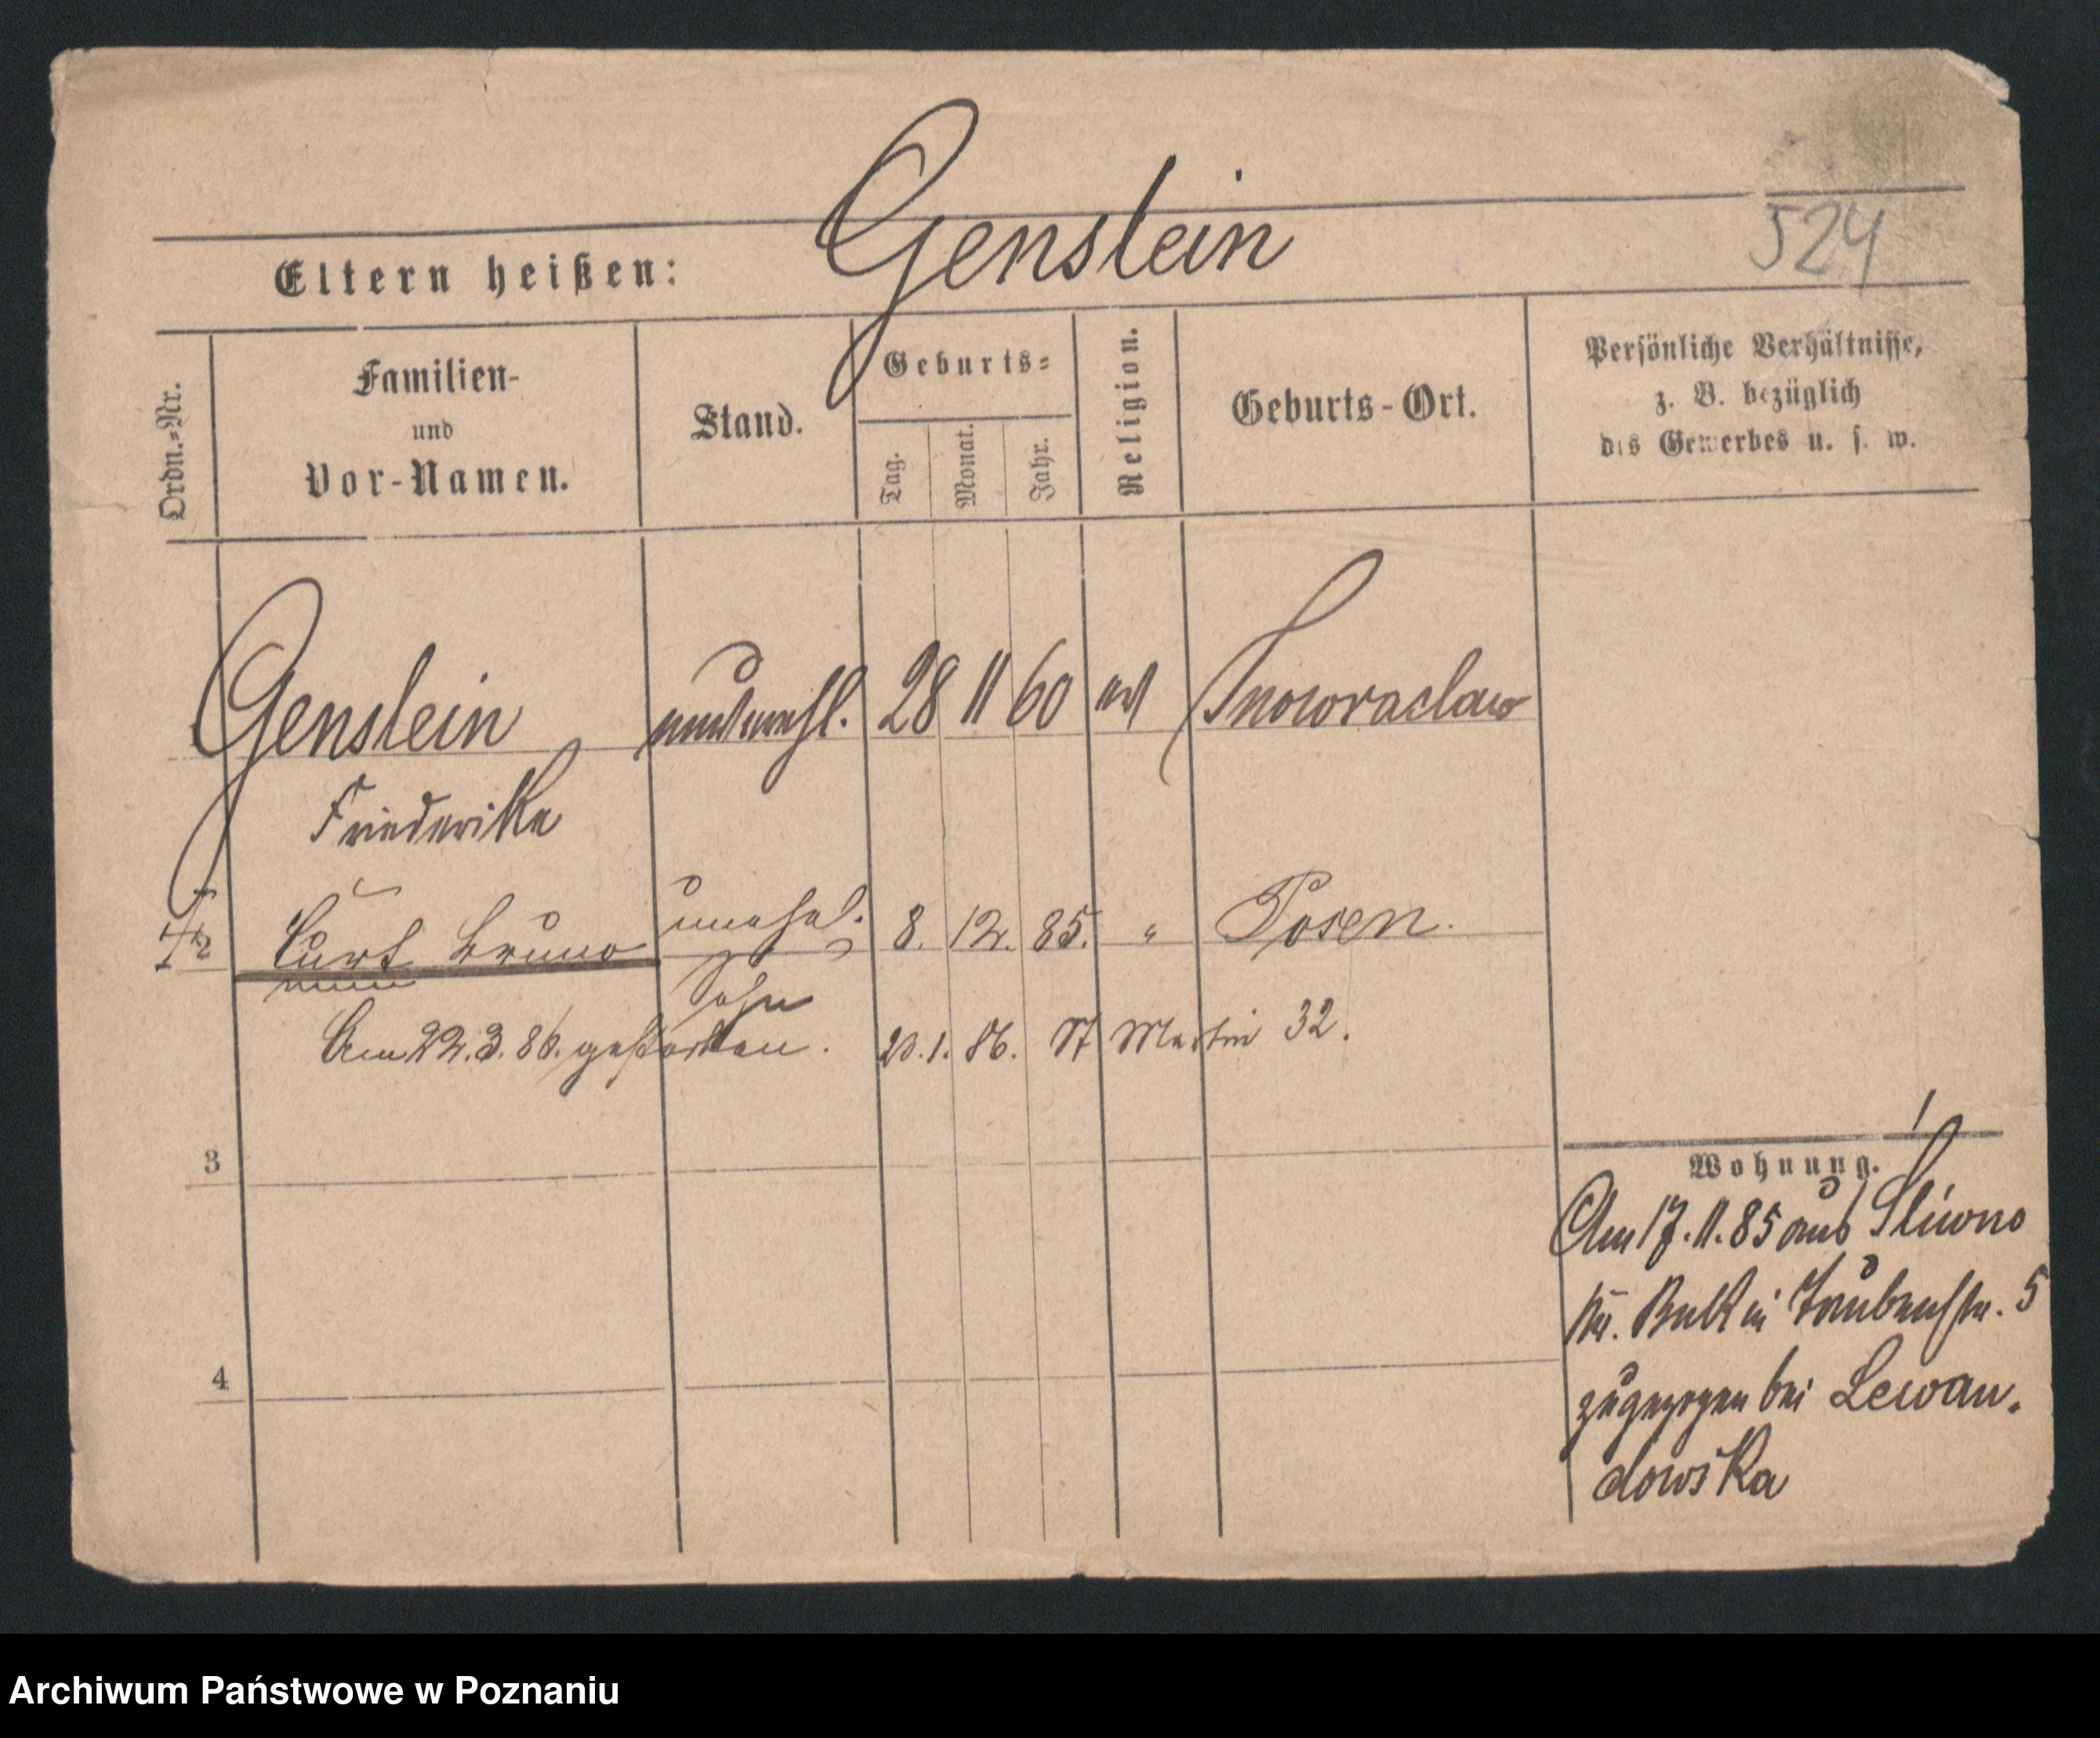 Genstein
524
Eltern heißen:
Ordn.-Nr.
Familien-
und
Vor-Namen.
Stand.
Geburts-
Tag.
Monat.
Jahr.
Religion.
Geburts-Ort.
Persönliche Verhältnisse,
z. B. bezüglich
des Gewerbes u. s. w.
Genstein unverehl. 28 11 60 ev Inowraclaw
Friederike
† 2 Curt Bruno unehel. 8. 12. 85. " Posen.
Sohn
Am 22.3.86. gestorben. 20.1.86. St Martin 32.
3
4
Wohnung.
Am 17.11.85 aus Sliwno
Kr. Buk in Taubenstr. 5
zugezogen bei Lewan-
dowska
Archiwum Państwowe w Poznaniu